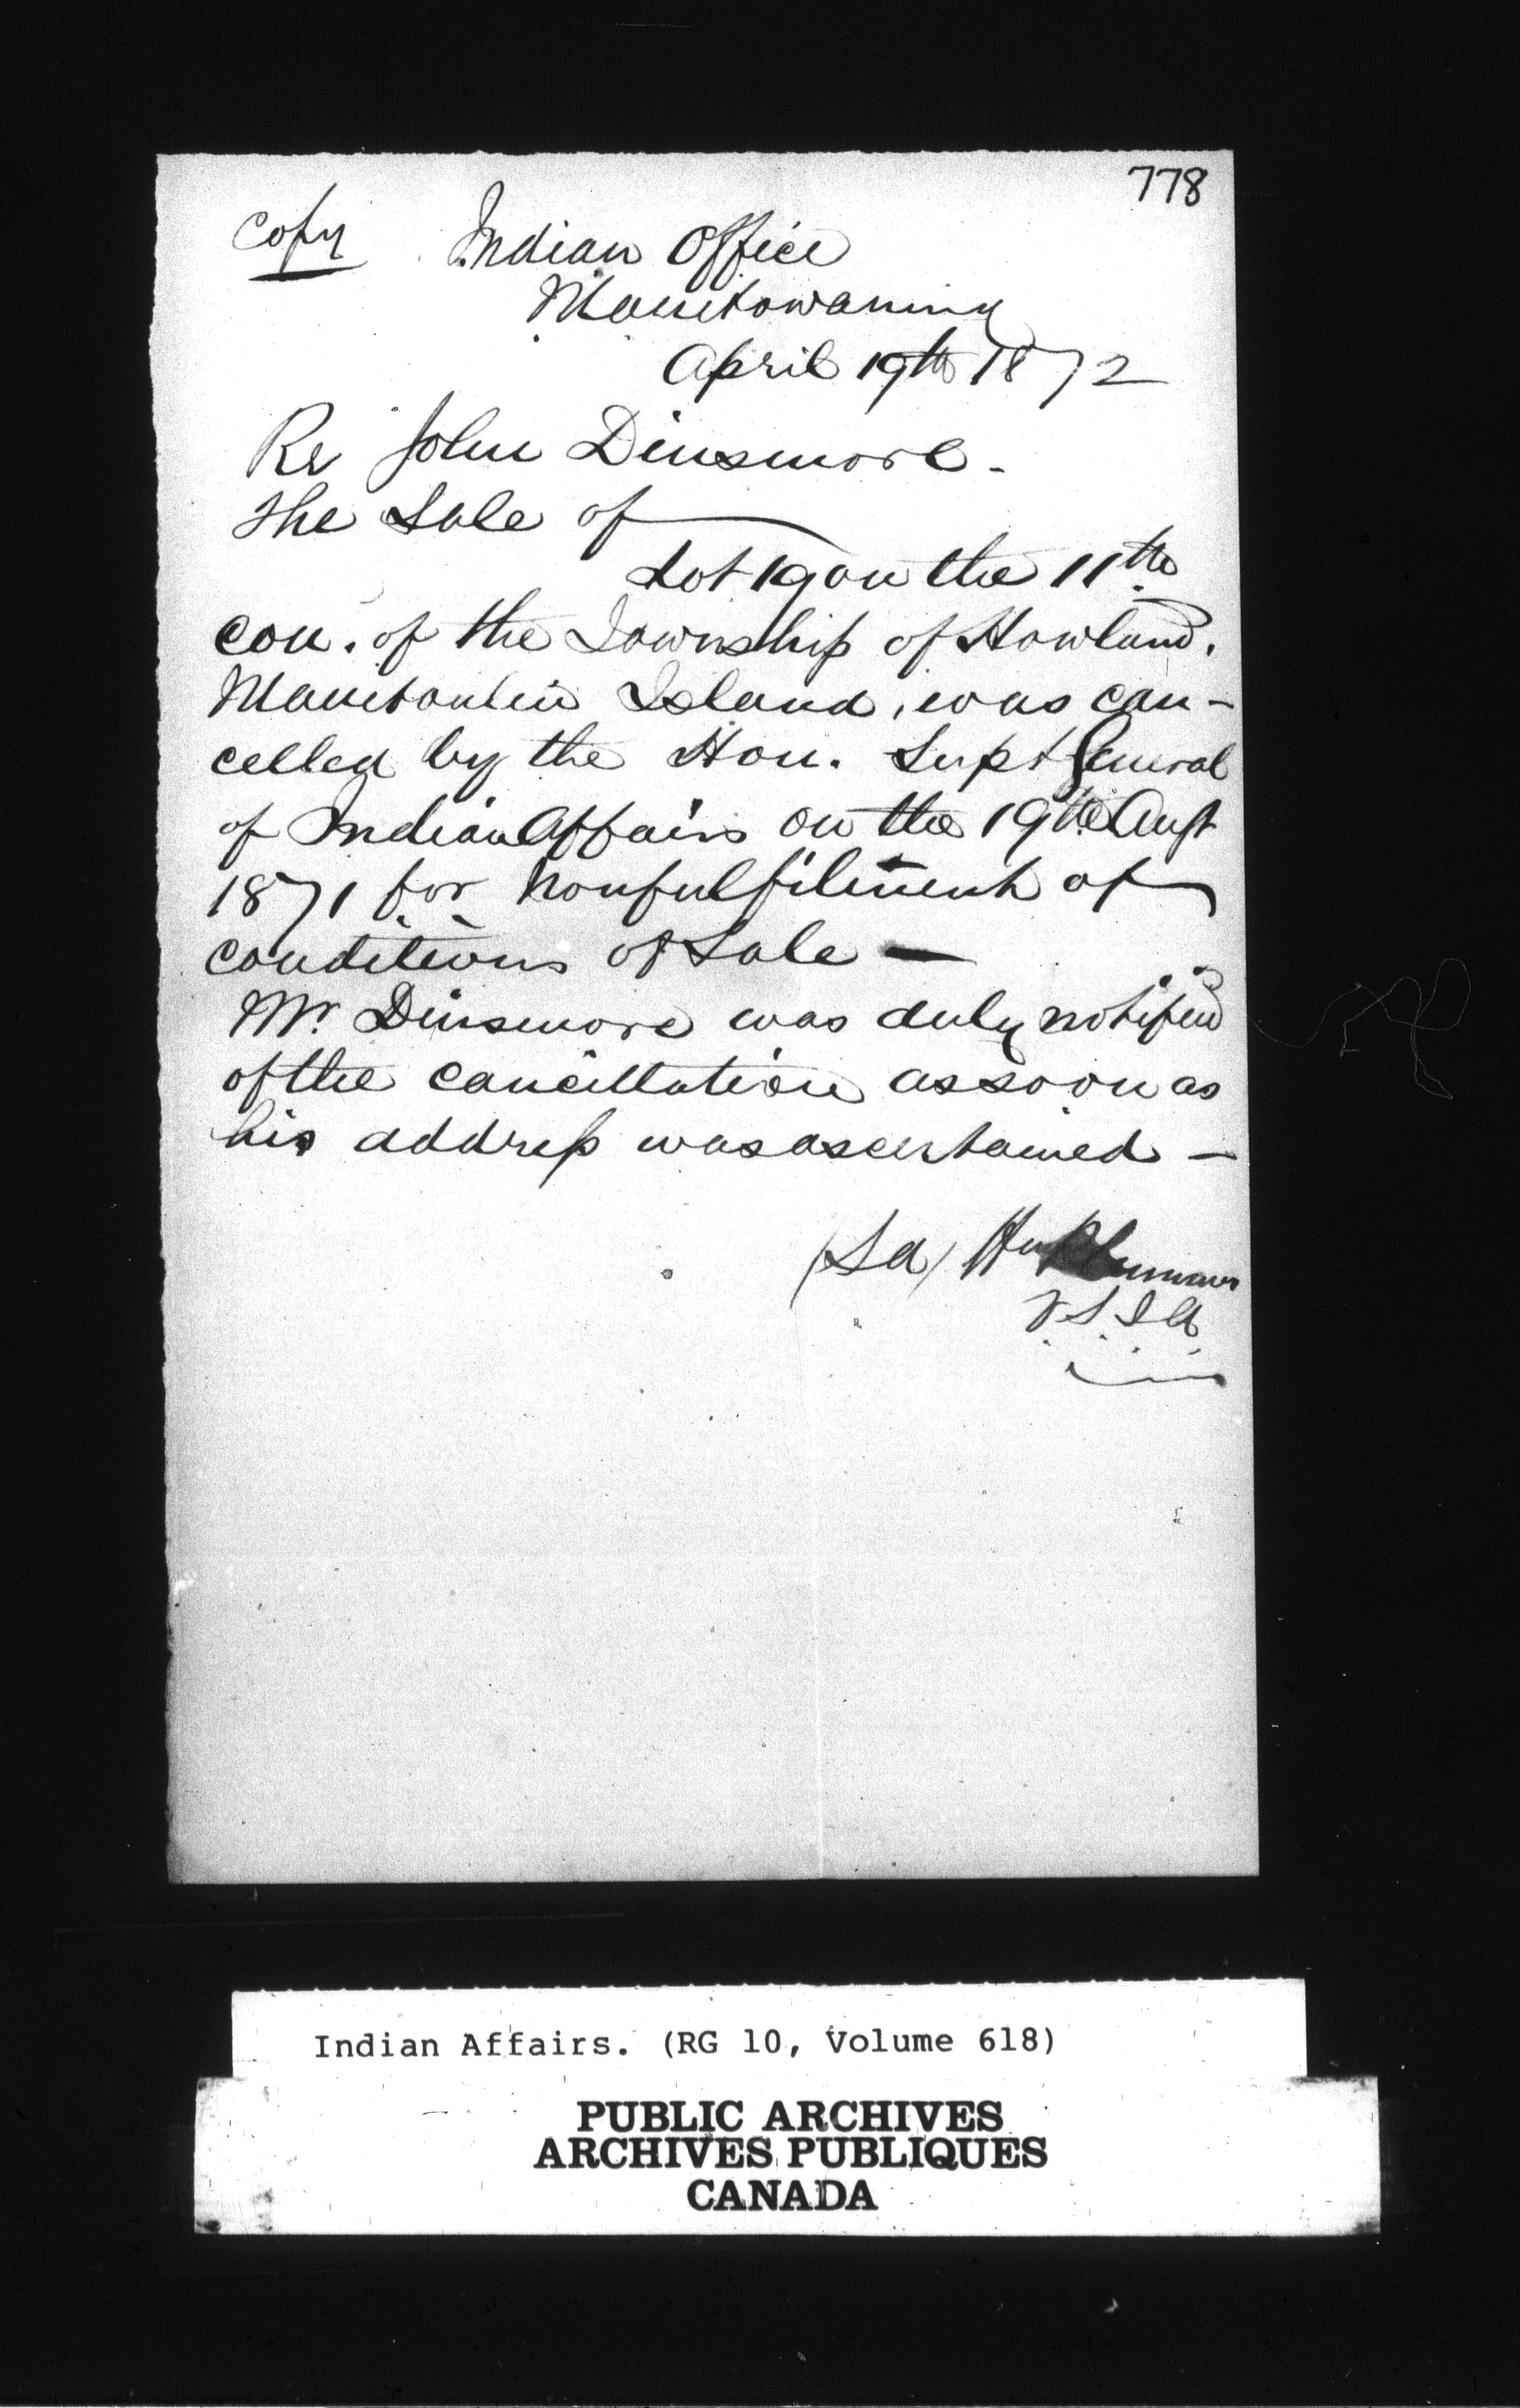 778
Copy Indian Office
Manitowaning
April 19th 1872
Re John Dinsmore -
The Sale of
Lot 19 on the 11th
con. of the Township of Howland.
Manitoulin Island, was can-
celled by the Hon. Supt General
of Indian Affairs on the 19th Augt
1871 for nonfulfilment of
conditions of Sale —
Mr. Dinsmore was duly notified
of the cancellation as soon as
his address was ascertained —
(Sd)
V.S.I.A.
Indian Affairs. (RG 10, Volume 618)
PUBLIC ARCHIVES
ARCHIVES PUBLIQUES
CANADA